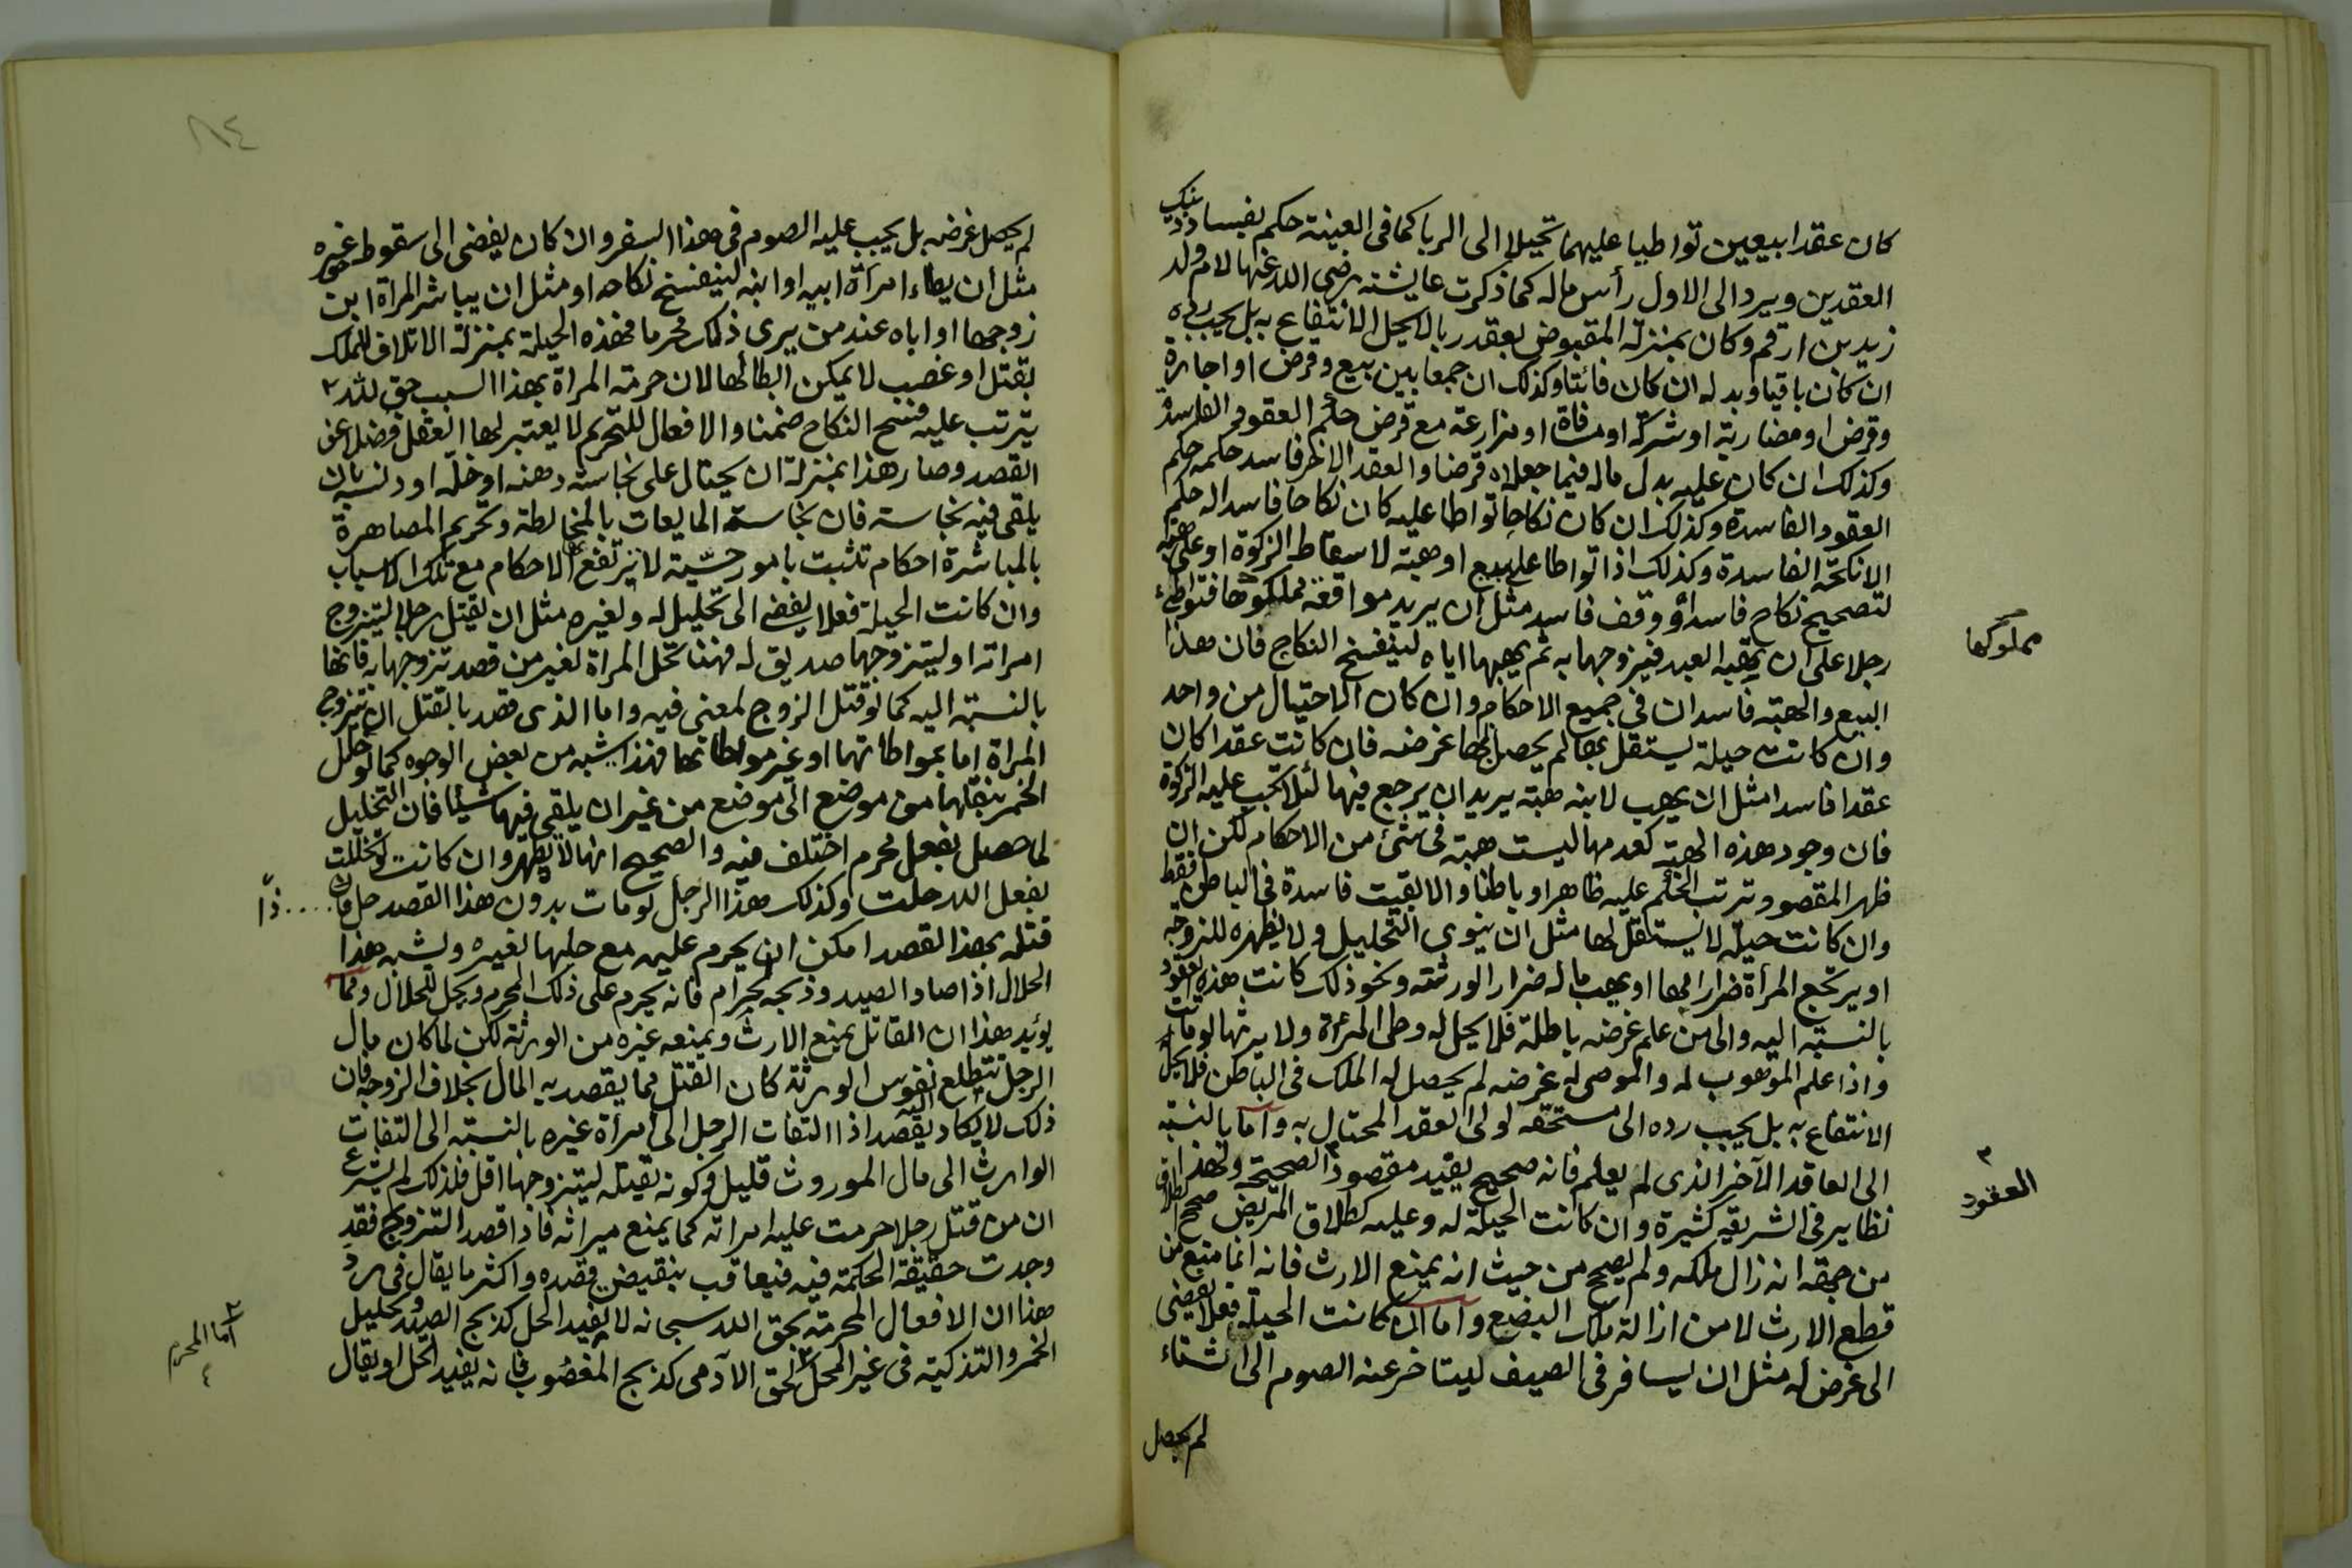 كان عقدا بيعين تواطيا عليهما تحيلا الى الربا كما فى العينة حكم بفساد ذينك
العقدين ويرد الى الاول رأس ماله كما ذكرت عايشة رضى الله عنها لام ولد
زيد بن ارقم وكان بمنزلة المقبوض بعقد ربا لا يحل الانتفاع به بل يجب رده
ان كان باقيا وبدله ان كان فائتا وكذلك ان جمعا بين بيع وقرض او اجارة
وقرض او مضاربة او شركة او مساقاة او مزارعة مع قرض حكم العقود الفاسدة
وكذلك ان كان عليه بدل ماله فيما جعلاه قرضا والعقد الاخر فاسد حكمه حكم
العقود الفاسدة وكذلك ان كان نكاحا تواطا عليه كان نكاحا فاسدا له حكم
الانكحة الفاسدة وكذلك اذا تواطا على بيع او هبة لاسقاط الزكوة او على هبة
لتصحيح نكاح فاسد او وقف فاسد مثل ان يريد مواقعة مملوكها فتواطىء
رجلا على ان يهبه العبد فيزوجها به ثم يهبها اياه لينفسخ النكاح فان هذا
البيع والهبة فاسدان فى جميع الاحكام وان كان الاحتيال من واحد
وان كانت حيلة يستقل بها لم يحصل بها غرضه فان كانت عقدا كان
عقدا فاسدا مثل ان يهب لابنه هبة يريد ان يرجع فيها لئلا تجب عليه الزكوة
فان وجود هذه الهبة كعدمها ليست هبة فى شئ من الاحكام لكن ان
ظهر المقصود ترتب الحكم عليه ظاهرا وباطنا والا بقيت فاسدة فى الباطن فقط
وان كانت حيلة لا يستقل بها مثل ان ينوى التحليل ولا يظهره للزوجة
او يرتجع المرأة ضرارا بها او يهب ماله ضرارا لورثته ونحو ذلك كانت هذه العقود
بالنسبة اليه والى من علم غرضه باطلة فلا يحل له وطى المرءة ولا يرثها لو ماتت
واذا علم الموهوب له والموصى له غرضه لم يحصل له الملك فى الباطن فلا يحل
الانتفاع به بل يجب رده الى مستحقه لولا العقد المحتال به واما بالنسبة
الى العاقد الآخر الذى لم يعلم فانه صحيح يفيد مقصود الصحيحة ولهذا
نظاير فى الشريعة كثيرة وان كانت الحيلة له وعليه كطلاق المريض صحح الطلاق
من جهة انه زال ملكه ولم يصح من حيث انه يمنع الارث فانه انما منع من
قطع الارث لا من ازالة ملك البضع واما ان كانت الحيلة فعلا يفضى
الى غرض له مثل ان يسافر فى الصيف ليتاخر عنه الصوم الى الشتاء
لم يحصل
مملوكها
العقود
لم يحصل غرضه بل يجب عليه الصوم فى هذا السفر وان كان يفضى الى سقوط غيره
مثل ان يطاء امرأة ابيه او ابنه لينفسخ نكاحه او مثل ان يباشر المرأة ابن
زوجها او اباه عند من يرى ذلك محرما فهذه الحيلة بمنزلة الاتلاف للملك
بقتل او غصب لا يمكن ابطالها لان حرمة المراة بهذا السبب حق لله
يترتب عليه فسخ النكاح ضمنا والافعال للتحريم لا يعتبر لها العقل فضلا عن
القصد وصار هذا بمنزلة ان يحتال على نجاسة دهنه او خله او دبسه بان
يلقى فيه نجاسة فان نجاسة المايعات بالمخالطة وتحريم المصاهرة
بالمباشرة احكام تثبت بامور حسّية لا يرتفع الاحكام مع تلك الاسباب
وان كانت الحيلة فعلا يفضى الى تحليل له ولغيره مثل ان يقتل رجلا ليتزوج
امراته او ليتزوجها صديق له فهنا تحل المراة لغير من قصد تزوجها به فانها
بالنسبة اليه كما لو قتل الزوج لمعنى فيه واما الذى قصد بالقتل ان يتزوج
المراة اما بمواطاتها او غير مواطاتها فهذا يشبه من بعض الوجوه كما لو خلل
الخمر بنقلها من موضع الى موضع من غير ان يلقى فيها شيئا فان التخليل
لما حصل بفعل محرم اختلف فيه والصحيح انها لا تطهر وان كانت لو تخللت
بفعل الله حلت وكذلك هذا الرجل لو مات بدون هذا القصد حل فان
قتله بهذا القصد امكن ان يحرم عليه مع حلها لغيره ويشبه هذا
الحلال اذا صاد الصيد وذبحه لحرام فانه يحرم على ذلك المحرم ويحل للحلال ومما
يؤيد هذا ان القاتل يمنع الارث ويمنعه غيره من الورثة لكن لما كان مال
الرجل تتطلع نفوس الورثة كان القتل مما يقصد به المال بخلاف الزوجة فان
ذلك لا يكاد يقصد اذا التفات الرجل الى امرأة غيره بالنسبة الى التفات
الوارث الى مال الموروث قليل وكونه يقتله ليتزوجها اقل فلذلك لم يشرع
ان من قتل رجلا حرمت عليه امراته كما يمنع ميراثه فاذا قصد التزوج فقد
وجدت حقيقة الحكمة فيه فيعاقب بنقيض قصده واكثر ما يقال فى رد
هذا ان الافعال المحرمة بحق الله سبحانه لا يفيد الحل كذبح الصيد وتحليل
الخمر والتذكية فى غير المحل لحق الآدمى كذبح المغصوب فانه يفيد الحل او يقال
اما المحرم